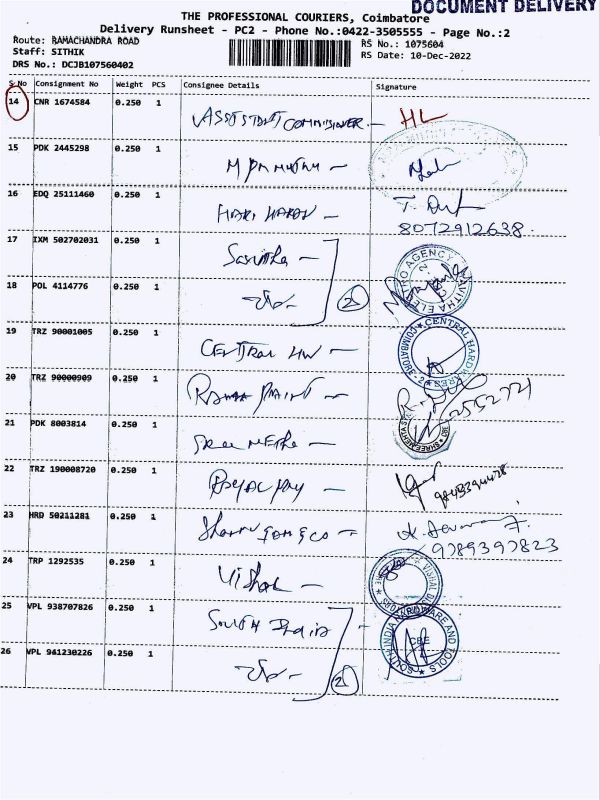 DOCUMENT DELIVERY
THE PROFESSIONAL COURIERS, Coimbatore
Delivery Runsheet - PC2 - Phone No.:0422-3505555 - Page No.:2
Route: RAMACHANDRA ROAD
RS No.: 1075604
Staff: SITHIK
RS Date: 10-Dec-2022
DRS No.: DCJB107560402
S.No Consignment No Weight PCS Consignee Details Signature
14 CNR 1674584 0.250 1
15 PDK 2445298 0.250 1
16 EDQ 25111460 0.250 1 HARI HARAN
8072912638
17 IXM 502702031 0.250 1 Savitha
ELECTRO AGENCY
18 POL 4114776 0.250 1 2
19 TRZ 90001005 0.250 1 CENTRAL HW
CENTRAL HARDWARES COIMBATORE - 2
20 TRZ 90000909 0.250 1 PAINT
2552721
21 PDK 8003814 0.250 1 SREE
22 TRZ 190008720 0.250 1 ROYAL
23 HRD 50211281 0.250 1
9789397823
24 TRP 1292535 0.250 1 Vishal
25 VPL 938707826 0.250 1 SOUTH INDIA
SOUTH INDIA HARDWARE AND TOOLS CBE
26 VPL 941230226 0.250 1 2